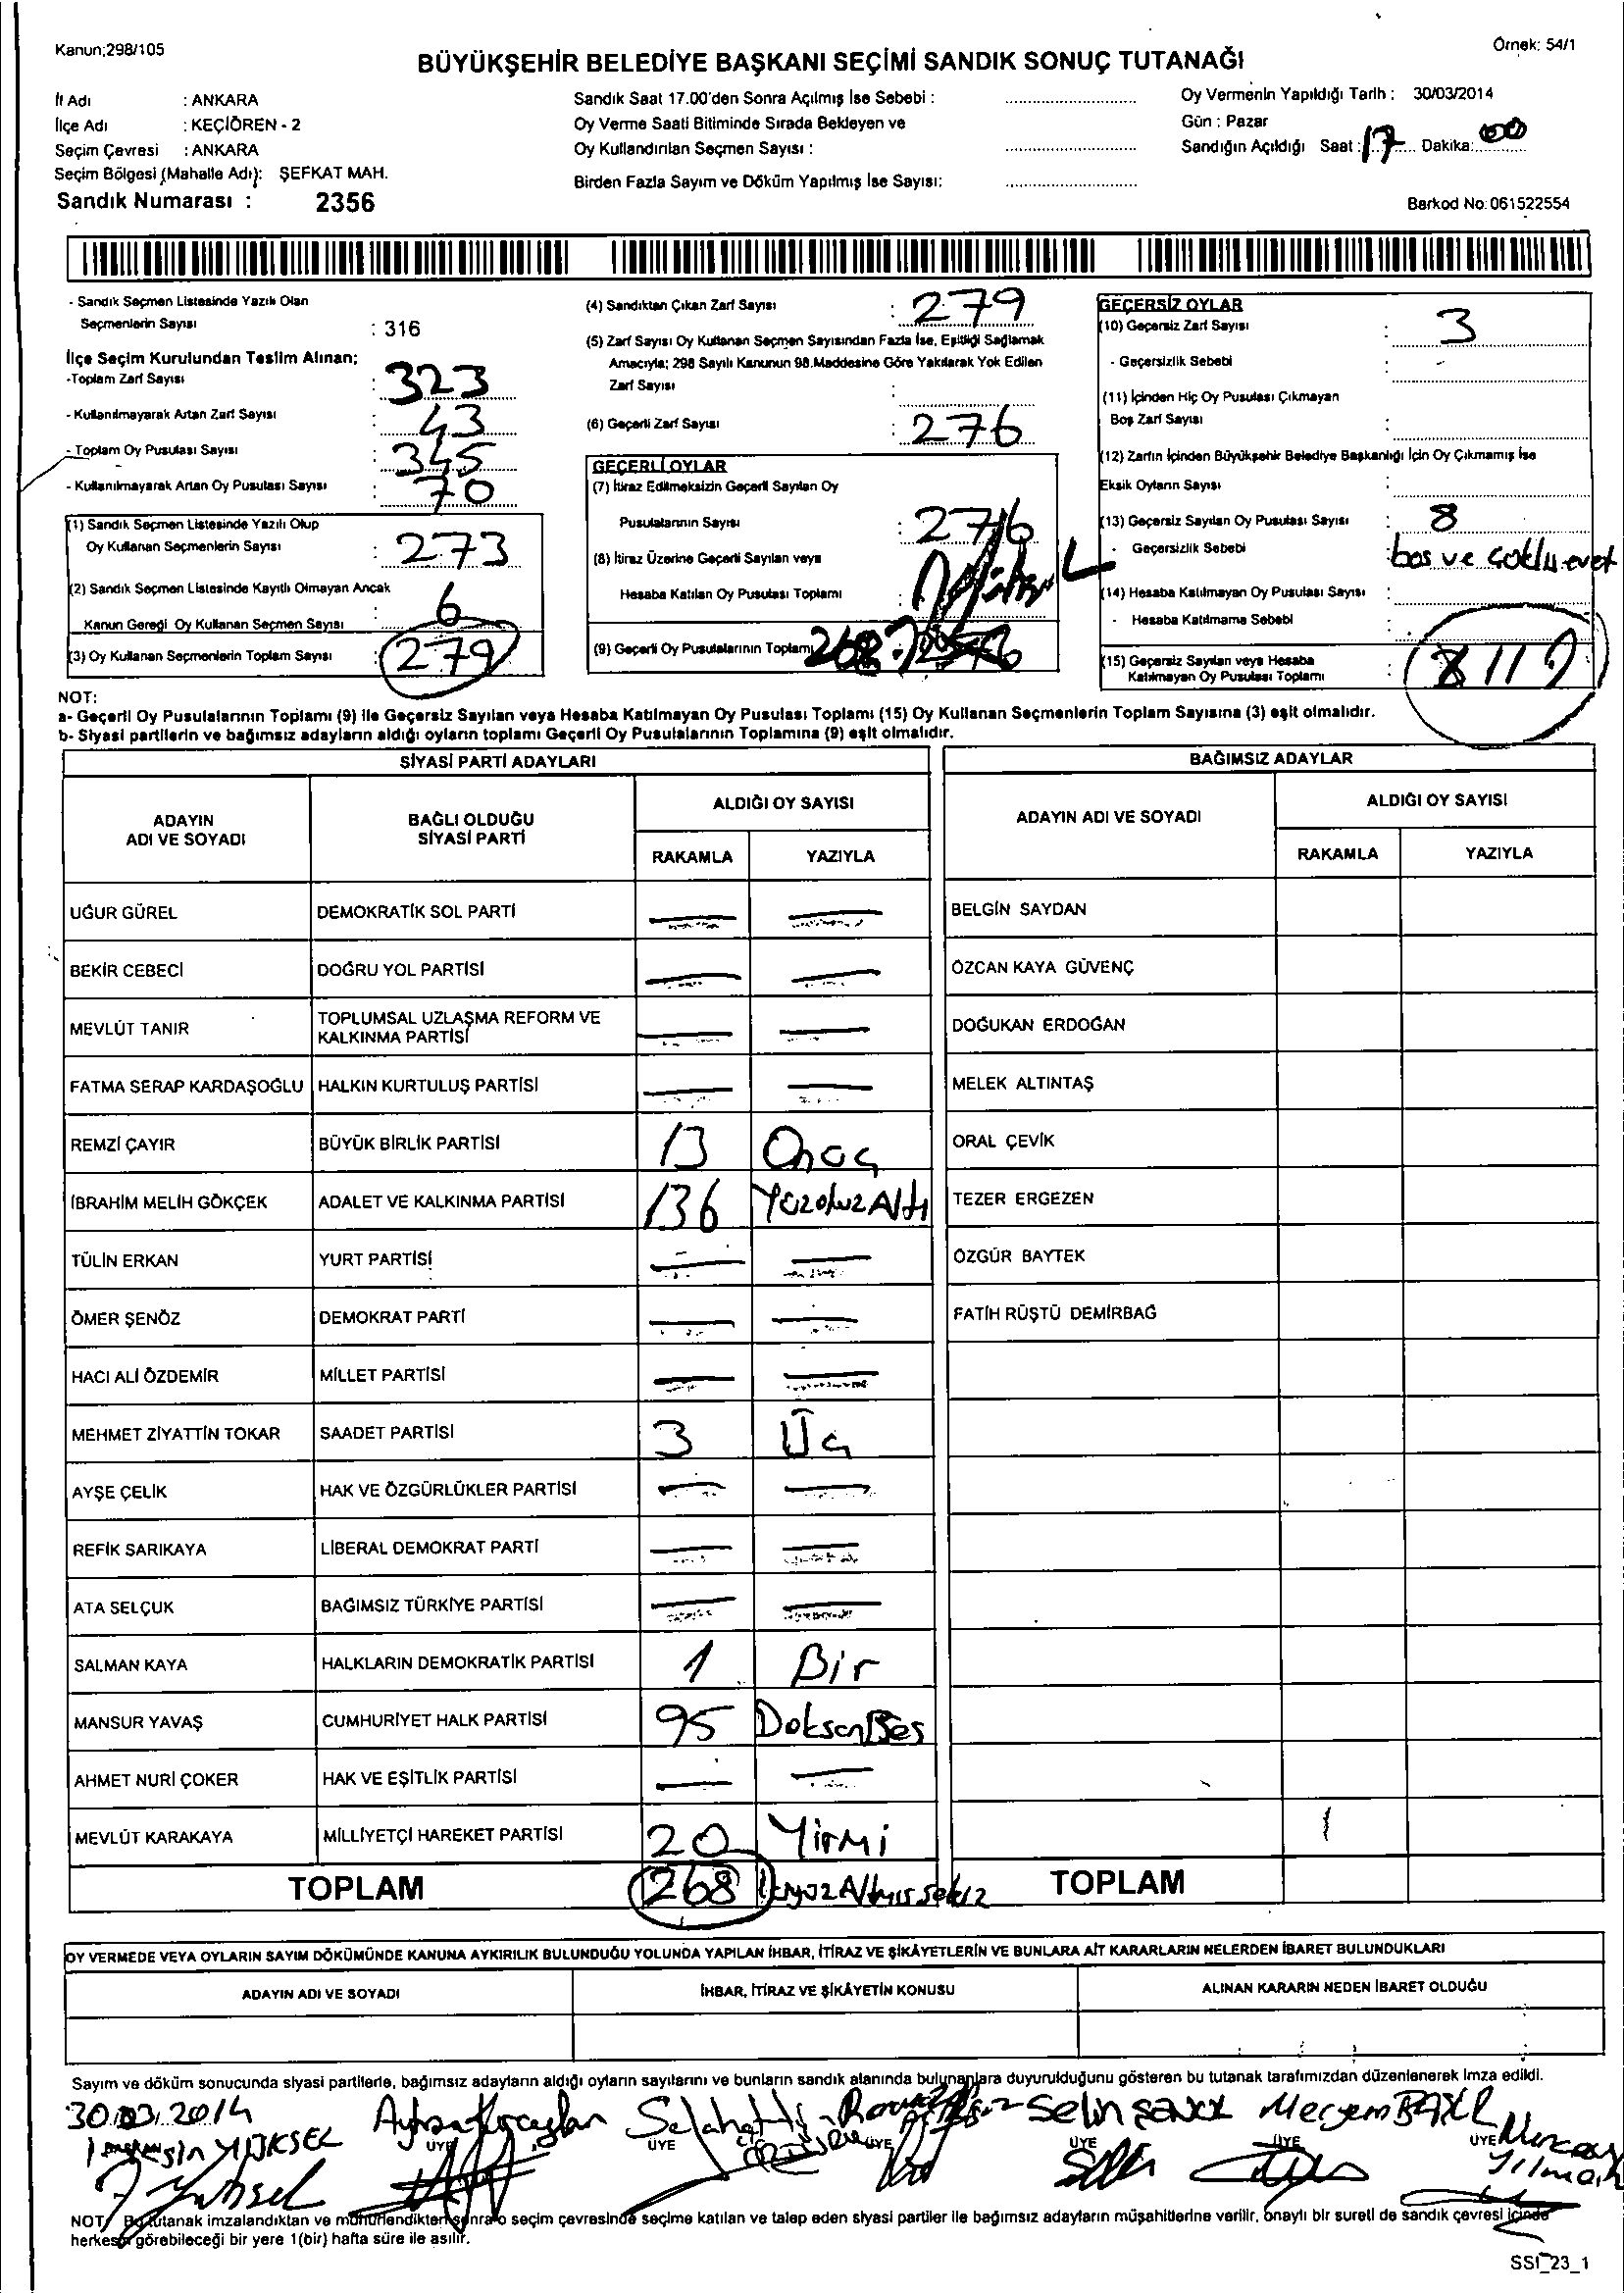 Kanun;298/105
Örnek: 54/1
BÜYÜKŞEHİR BELEDİYE BAŞKANI SEÇİMİ SANDIK SONUÇ TUTANAĞI
İl Adı : ANKARA
İlçe Adı : KEÇİÖREN - 2
Seçim Çevresi : ANKARA
Seçim Bölgesi (Mahalle Adı): ŞEFKAT MAH.
Sandık Numarası : 2356
Sandık Saat 17.00'den Sonra Açılmış İse Sebebi :
Oy Verme Saati Bitiminde Sırada Bekleyen ve
Oy Kullandırılan Seçmen Sayısı :
Birden Fazla Sayım ve Döküm Yapılmış İse Sayısı:
Oy Vermenin Yapıldığı Tarih : 30/03/2014
Gün : Pazar
Sandığın Açıldığı Saat : 17 Dakika: 00
Barkod No: 061522554
- Sandık Seçmen Listesinde Yazılı Olan
Seçmenlerin Sayısı : 316
İlçe Seçim Kurulundan Teslim Alınan;
-Toplam Zarf Sayısı : 323
- Kullanılmayarak Artan Zarf Sayısı : 43
- Toplam Oy Pusulası Sayısı : 345
- Kullanılmayarak Artan Oy Pusulası Sayısı : 70
(1) Sandık Seçmen Listesinde Yazılı Olup
Oy Kullanan Seçmenlerin Sayısı : 273
(2) Sandık Seçmen Listesinde Kayıtlı Olmayan Ancak
Kanun Gereği Oy Kullanan Seçmen Sayısı : 6
(3) Oy Kullanan Seçmenlerin Toplam Sayısı : 279
(4) Sandıktan Çıkan Zarf Sayısı : 279
(5) Zarf Sayısı Oy Kullanan Seçmen Sayısından Fazla İse, Eşitliği Sağlamak
Amacıyla; 298 Sayılı Kanunun 98.Maddesine Göre Yakılarak Yok Edilen
Zarf Sayısı :
(6) Geçerli Zarf Sayısı : 276
GEÇERLİ OYLAR
(7) İtiraz Edilmeksizin Geçerli Sayılan Oy
Pusulalarının Sayısı : 276
(8) İtiraz Üzerine Geçerli Sayılan veya
Hesaba Katılan Oy Pusulası Toplamı :
(9) Geçerli Oy Pusulalarının Toplamı 268
GEÇERSİZ OYLAR
(10) Geçersiz Zarf Sayısı : 3
- Geçersizlik Sebebi :
(11) İçinden Hiç Oy Pusulası Çıkmayan
Boş Zarf Sayısı :
(12) Zarfın İçinden Büyükşehir Belediye Başkanlığı İçin Oy Çıkmamış İse
Eksik Oyların Sayısı :
(13) Geçersiz Sayılan Oy Pusulası Sayısı : 8
- Geçersizlik Sebebi : bos ve çoklu evet
(14) Hesaba Katılmayan Oy Pusulası Sayısı :
- Hesaba Katılmama Sebebi :
(15) Geçersiz Sayılan veya Hesaba
Katılmayan Oy Pusulası Toplamı : 11
NOT:
a- Geçerli Oy Pusulalarının Toplamı (9) ile Geçersiz Sayılan veya Hesaba Katılmayan Oy Pusulası Toplamı (15) Oy Kullanan Seçmenlerin Toplam Sayısına (3) eşit olmalıdır.
b- Siyasi partilerin ve bağımsız adayların aldığı oyların toplamı Geçerli Oy Pusulalarının Toplamına (9) eşit olmalıdır.
SİYASİ PARTİ ADAYLARI
ADAYIN ADI VE SOYADI
BAĞLI OLDUĞU SİYASİ PARTİ
ALDIĞI OY SAYISI
RAKAMLA YAZIYLA
UĞUR GÜREL DEMOKRATİK SOL PARTİ
BEKİR CEBECİ DOĞRU YOL PARTİSİ
MEVLÜT TANIR TOPLUMSAL UZLAŞMA REFORM VE KALKINMA PARTİSİ
FATMA SERAP KARDAŞOĞLU HALKIN KURTULUŞ PARTİSİ
REMZİ ÇAYIR BÜYÜK BİRLİK PARTİSİ 13 Onüç
İBRAHİM MELİH GÖKÇEK ADALET VE KALKINMA PARTİSİ 136 YüzotuzAltı
TÜLİN ERKAN YURT PARTİSİ
ÖMER ŞENÖZ DEMOKRAT PARTİ
HACI ALİ ÖZDEMİR MİLLET PARTİSİ
MEHMET ZİYATTİN TOKAR SAADET PARTİSİ 3 Üç
AYŞE ÇELİK HAK VE ÖZGÜRLÜKLER PARTİSİ
REFİK SARIKAYA LİBERAL DEMOKRAT PARTİ
ATA SELÇUK BAĞIMSIZ TÜRKİYE PARTİSİ
SALMAN KAYA HALKLARIN DEMOKRATİK PARTİSİ 1 Bir
MANSUR YAVAŞ CUMHURİYET HALK PARTİSİ 95 DoksanBeş
AHMET NURİ ÇOKER HAK VE EŞİTLİK PARTİSİ
MEVLÜT KARAKAYA MİLLİYETÇİ HAREKET PARTİSİ 20 Yirmi
TOPLAM 268 İkiyüzAltmışsekiz
BAĞIMSIZ ADAYLAR
ADAYIN ADI VE SOYADI
ALDIĞI OY SAYISI
RAKAMLA YAZIYLA
BELGİN SAYDAN
ÖZCAN KAYA GÜVENÇ
DOĞUKAN ERDOĞAN
MELEK ALTINTAŞ
ORAL ÇEVİK
TEZER ERGEZEN
ÖZGÜR BAYTEK
FATİH RÜŞTÜ DEMİRBAĞ
TOPLAM
OY VERMEDE VEYA OYLARIN SAYIM DÖKÜMÜNDE KANUNA AYKIRILIK BULUNDUĞU YOLUNDA YAPILAN İHBAR, İTİRAZ VE ŞİKÂYETLERİN VE BUNLARA AİT KARARLARIN NELERDEN İBARET BULUNDUKLARI
ADAYIN ADI VE SOYADI İHBAR, İTİRAZ VE ŞİKÂYETİN KONUSU ALINAN KARARIN NEDEN İBARET OLDUĞU
Sayım ve döküm sonucunda siyasi partilerle, bağımsız adayların aldığı oyların sayılarını ve bunların sandık alanında bulunanlara duyurulduğunu gösteren bu tutanak tarafımızdan düzenlenerek imza edildi.
30.03.2014
BAŞKAN YÜKSEL
ÜYE ÜYE ÜYE ÜYE ÜYE ÜYE
Selin Meryem
Yılmaz
NOT: Bu tutanak imzalandıktan ve mühürlendikten sonra o seçim çevresinde seçime katılan ve talep eden siyasi partiler ile bağımsız adayların müşahitlerine verilir, onaylı bir sureti de sandık çevresi içinde
herkesin görebileceği bir yere 1(bir) hafta süre ile asılır.
SSI_23_1